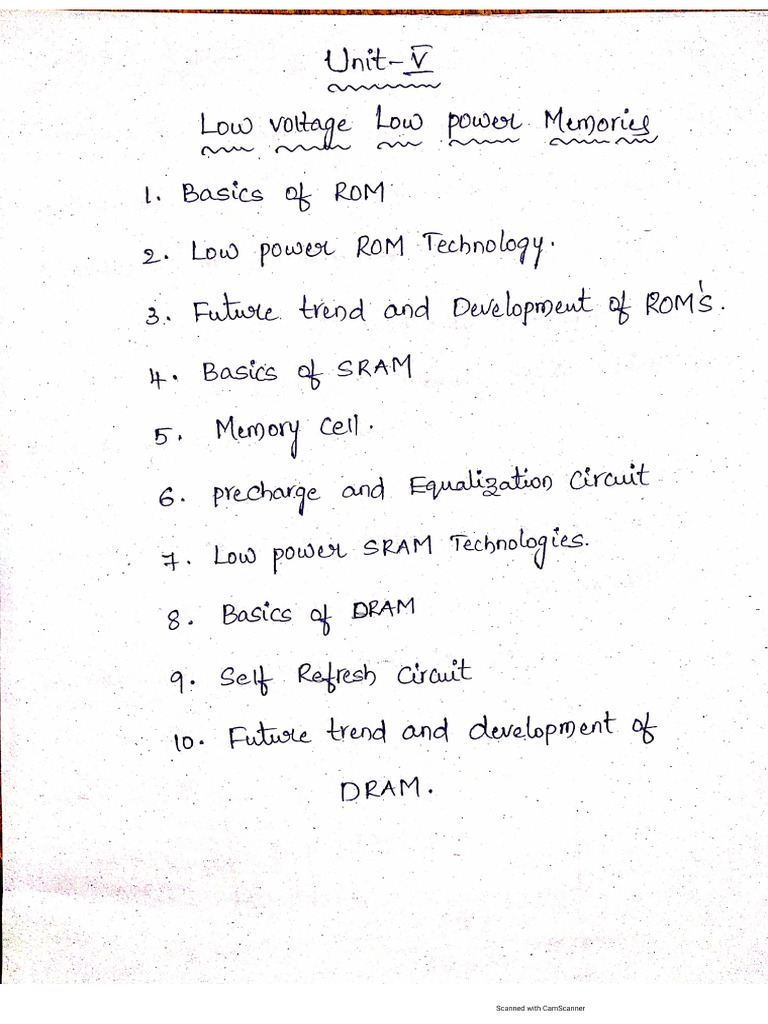 Unit-V
Low voltage Low power Memories
1. Basics of ROM
2. Low power ROM Technology.
3. Future trend and Development of ROM's.
4. Basics of SRAM
5. Memory Cell.
6. precharge and Equalization Circuit
7. Low power SRAM Technologies.
8. Basics of DRAM
9. Self Refresh Circuit
10. Future trend and development of
DRAM.
Scanned with CamScanner